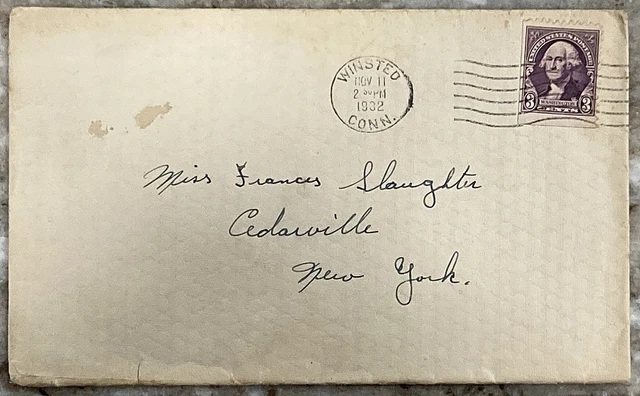 WINSTED
NOV 11
2 30 PM
1932
CONN.
UNITED STATES POSTAGE
WASHINGTON
3 3
Miss Frances Slaughter
Cedarville
New York.